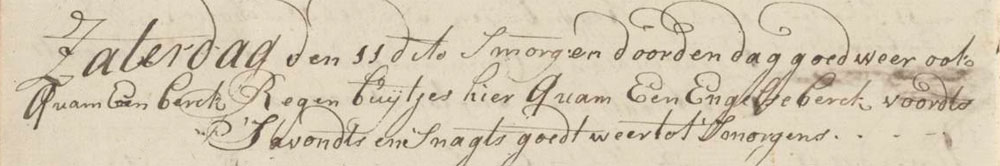 Zaterdag den 11 dito Smorgen doorden dag goed weer ook
Quam Een berck Regen buijtjes hier Quam Een Engelse berck voordts
S'avondts en Snagts goedt weer tot S'morgens . . .